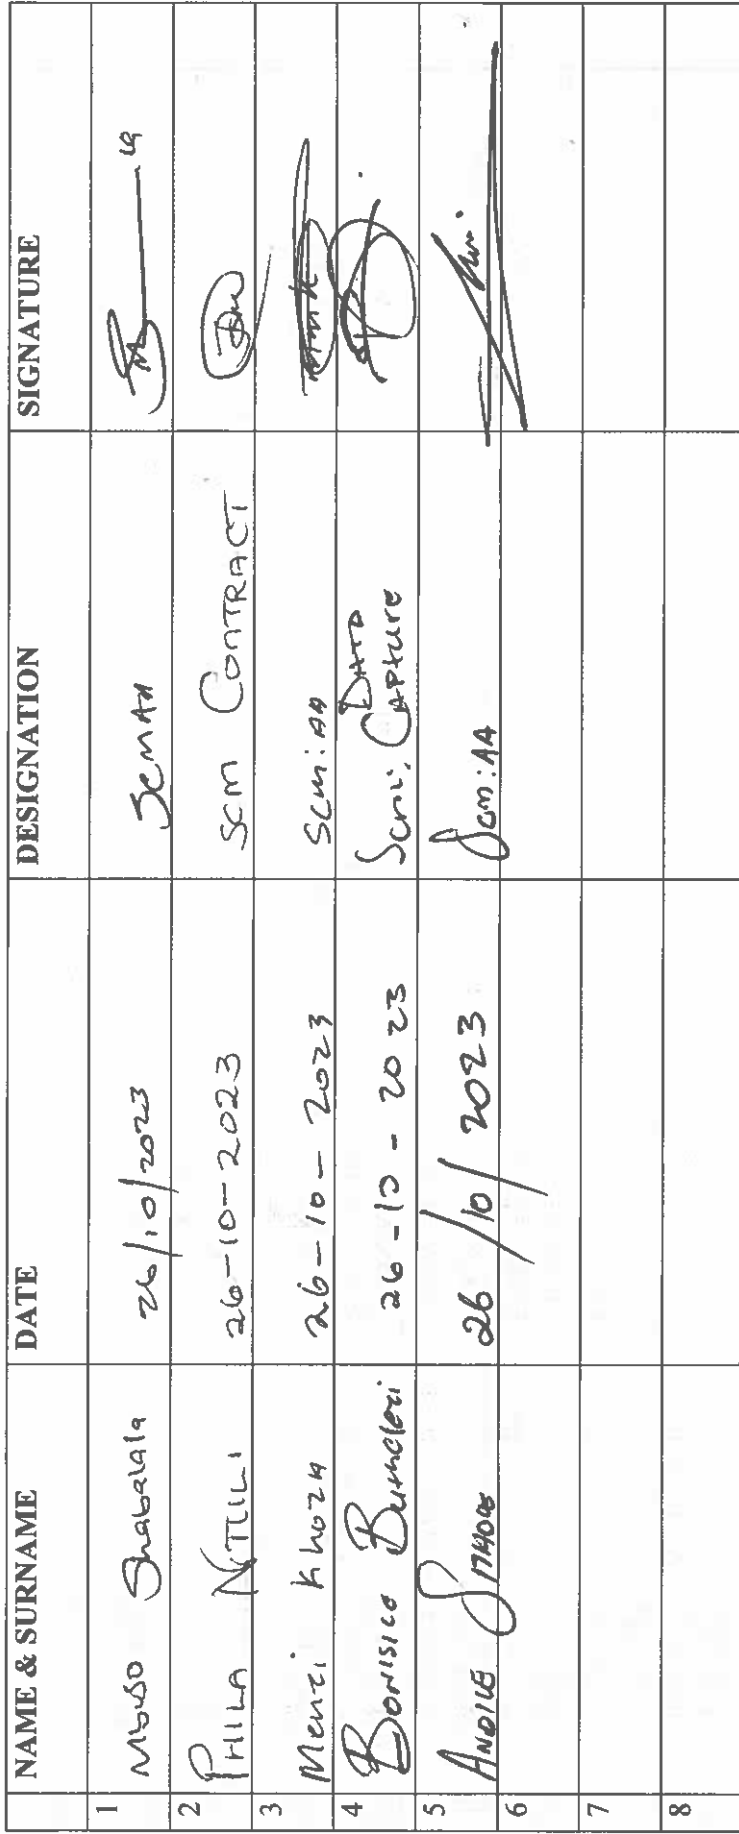 NAME & SURNAME DATE DESIGNATION SIGNATURE
1 Mbuso Shabalala 26/10/2023 SCM AA
2 PHILA NTULI 26-10-2023 SCM CONTRACT
3 Menzi Khoza 26-10-2023 SCM: AA
4 Bonisico 26-10-2023 SCM: DATA Capture
5 ANDILE 26/10/2023 SCM: AA
6
7
8